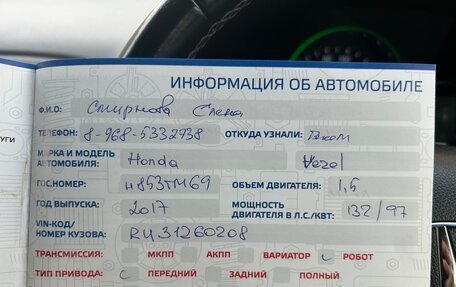 ИНФОРМАЦИЯ ОБ АВТОМОБИЛЕ
Ф.И.О: Смирнова Елена
ТЕЛЕФОН: 8-968-5332738 ОТКУДА УЗНАЛИ:
УГИ
МАРКА И МОДЕЛЬ
АВТОМОБИЛЯ: Honda Vezel
ГОС.НОМЕР: н853тм69 ОБЪЕМ ДВИГАТЕЛЯ: 1,5
ГОД ВЫПУСКА: 2017 МОЩНОСТЬ
ДВИГАТЕЛЯ В Л.С./КВТ: 132/97
VIN-КОД/
НОМЕР КУЗОВА: RU31260208
ТРАНСМИССИЯ: МКПП АКПП ВАРИАТОР РОБОТ
ТИП ПРИВОДА: ПЕРЕДНИЙ ЗАДНИЙ ПОЛНЫЙ